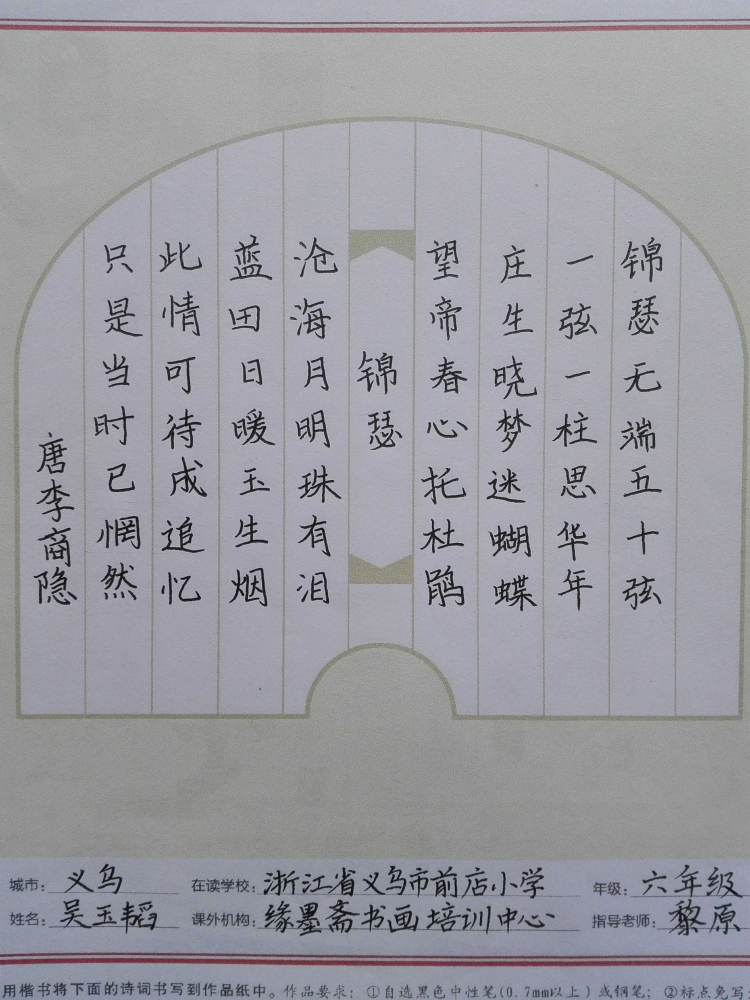 锦瑟无端五十弦
一弦一柱思华年
庄生晓梦迷蝴蝶
望帝春心托杜鹃
锦瑟
沧海月明珠有泪
蓝田日暖玉生烟
此情可待成追忆
只是当时已惘然
唐李商隐
城市：义乌 在读学校：浙江省义乌市前店小学 年级：六年级
姓名：吴玉韬 课外机构：缘墨斋书画培训中心 指导老师：黎原
用楷书将下面的诗词书写到作品纸中。作品要求：①自选黑色中性笔(0.7mm以上)或钢笔；②标点免写